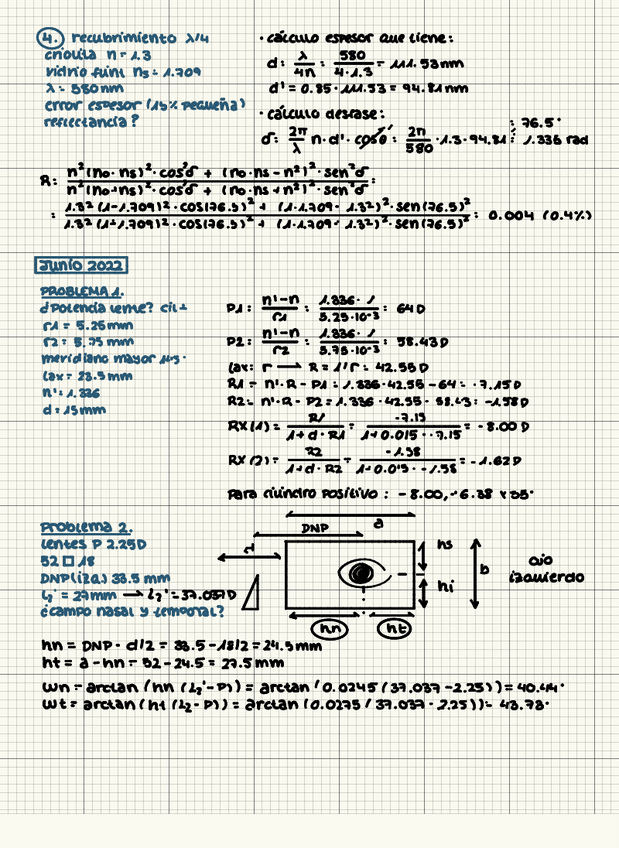 4. recubrimiento λ/4
criolita n = 1.3
vidrio flint ns = 1.709
λ = 580 nm
error espesor (15% pequeña)
reflectancia?
· cálculo espesor que tiene:
d: λ/4n : 580/4·1.3 = 111.53 nm
d' = 0.85 · 111.53 = 94.81 nm
· cálculo desfase:
δ: 2π/λ n·d'·cosθ' : 2π/580 ·1.3·94.81 : 76.5° : 1.336 rad
R: n²(no-ns)²·cos²δ + (no·ns-n²)²·sen²δ / n²(no+ns)²·cos²δ + (no·ns+n²)²·sen²δ :
: 1.3²(1-1.709)²·cos(76.5)² + (1·1.709-1.3²)²·sen(76.5)² / 1.3²(1+1.709)²·cos(76.5)² + (1·1.709+1.3²)²·sen(76.5)² : 0.004 (0.4%)
Junio 2022
PROBLEMA 1.
¿Potencia lente? cil +
r1 = 5.25 mm
r2 = 5.75 mm
meridiano mayor
Lax = 23.5 mm
n' = 1.336
d = 15 mm
P1: n'-n/r1 : 1.336-1/5.25·10-3 : 64 D
P2: n'-n/r2 : 1.336-1/5.75·10-3 : 58.43 D
Lax: r → R = 1/r = 42.55 D
R1 = n'·R - P1 = 1.336·42.55 - 64 = -7.15 D
R2 = n'·R - P2 = 1.336·42.55 - 58.43 = -1.58 D
RX(1) = R1/1+d·R1 = -7.15/1+0.015·-7.15 = -8.00 D
RX(2) = R2/1+d·R2 = -1.58/1+0.015·-1.58 = -1.62 D
Para cilindro positivo : -8.00, +6.38 x
Problema 2.
lentes P 2.25 D
52 □ 18
DNP(iza) 33.5 mm
L2' = 27 mm → L2' = 37.037 D
¿campo nasal y temporal?
a
DNP
d
hs
hi
b
ojo
izquierdo
hn
ht
hn = DNP - d/2 = 33.5 - 18/2 = 24.5 mm
ht = a - hn = 52 - 24.5 = 27.5 mm
wn = arctan (hn (L2'-P)) = arctan (0.0245 (37.037 - 2.25)) = 40.44°
wt = arctan (ht (L2-P)) = arctan (0.0275 (37.037 - 2.25)) = 43.73°